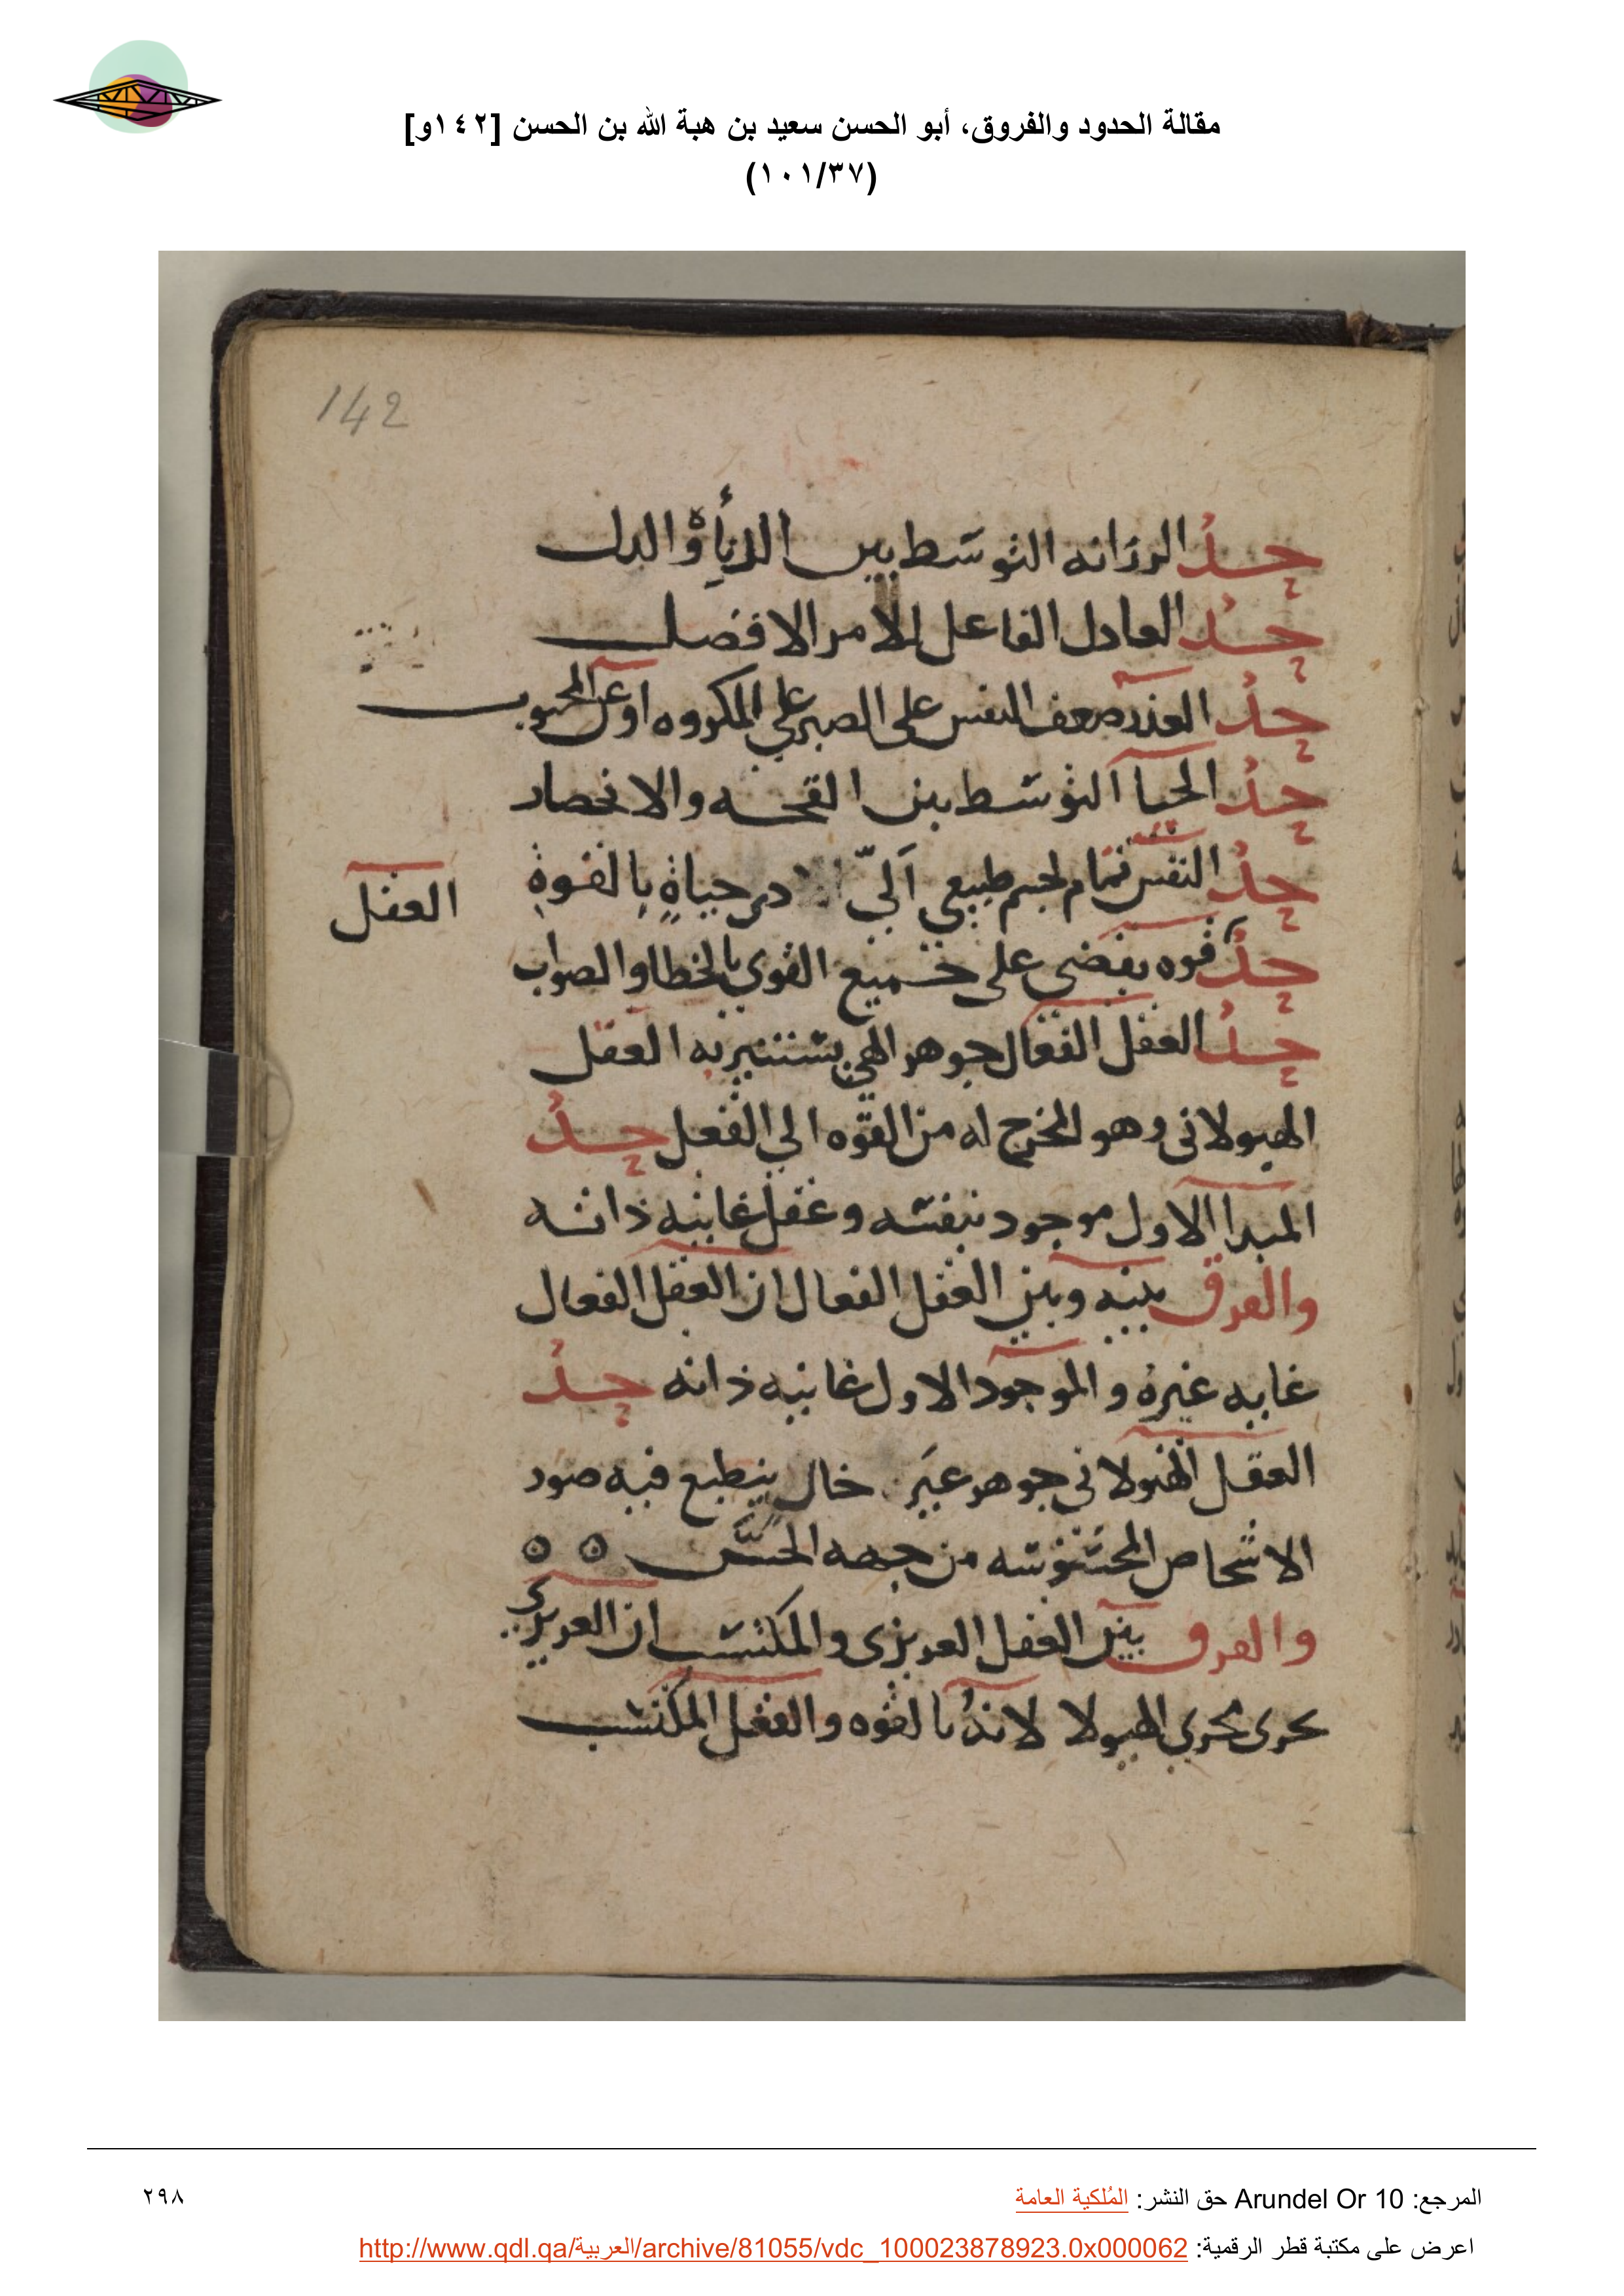 مقالة الحدود والفروق، أبو الحسن سعيد بن هبة الله بن الحسن [١٤٢و]
(١٠١/٣٧)
142
حد الرزانه التوسط بين
حد العادل الفاعل للامر الافضل
حد ضعف النفس على الصبر على المكروه او عن المحبوب
حد الحيا التوسط بين القحه والانحصار
حد النفس تمام لجسم طبيعي آليّ حياةٍ بالقوة
العقل
حد قوه تقضي على جميع القوى بالخطا والصواب
حد العقل الفعال جوهر الهي يستنير به العقل
الهيولاني وهو المخرج له من القوه الي الفعل حد
المبدا الاول موجود بنفسه وعقل غايته ذاته
والفرق بينه وبين العقل الفعال ان العقل الفعال
غايه غيره والموجود الاول غايته ذاته حد
العقل الهيولاني جوهر خال ينطبع فيه صور
الاشخاص المحسوسه من جهه الحس ٥ ٥
والفرق بين العقل الغريزي والمكتسب ان الغريزي
يجرى مجرى الهيولا لانه بالقوه والعقل المكتسب
المرجع: Arundel Or 10 حق النشر: المُلكية العامة
٢٩٨
اعرض على مكتبة قطر الرقمية: http://www.qdl.qa/العربية/archive/81055/vdc_100023878923.0x000062